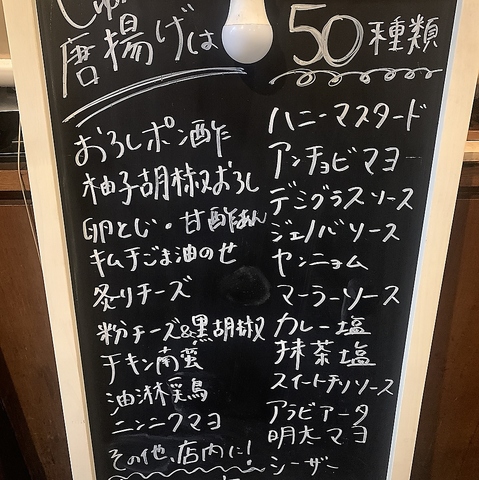 唐揚げは
50種類
おろしポン酢
柚子胡椒おろし
卵とじ・甘酢あん
キムチごま油のせ
炙りチーズ
粉チーズ&黒胡椒
チキン南蛮
油淋鶏
ニンニクマヨ
その他、店内に!
ハニーマスタード
アンチョビマヨ
デミグラスソース
ジェノバソース
ヤンニョム
マーラーソース
カレー塩
抹茶塩
スイートチリソース
アラビアータ
明太マヨ
シーザー